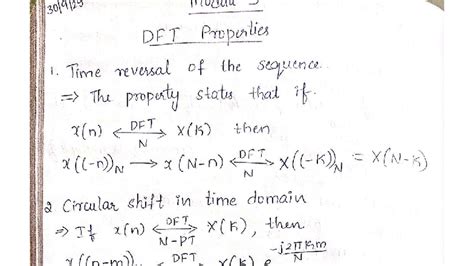 30/9/23
Module 3
DFT Properties
1. Time reversal of the sequence.
⇒ The property states that if
x(n) ⟷ DFT N X(K) then
x((-n))N → x(N-n) ⟷ DFT N X((-K))N = X(N-K)
2 Circular shift in time domain
⇒ If x(n) ⟷ DFT N-PT X(K), then
x((n-m))N ⟷ DFT X(K) e^-j2πKm/N